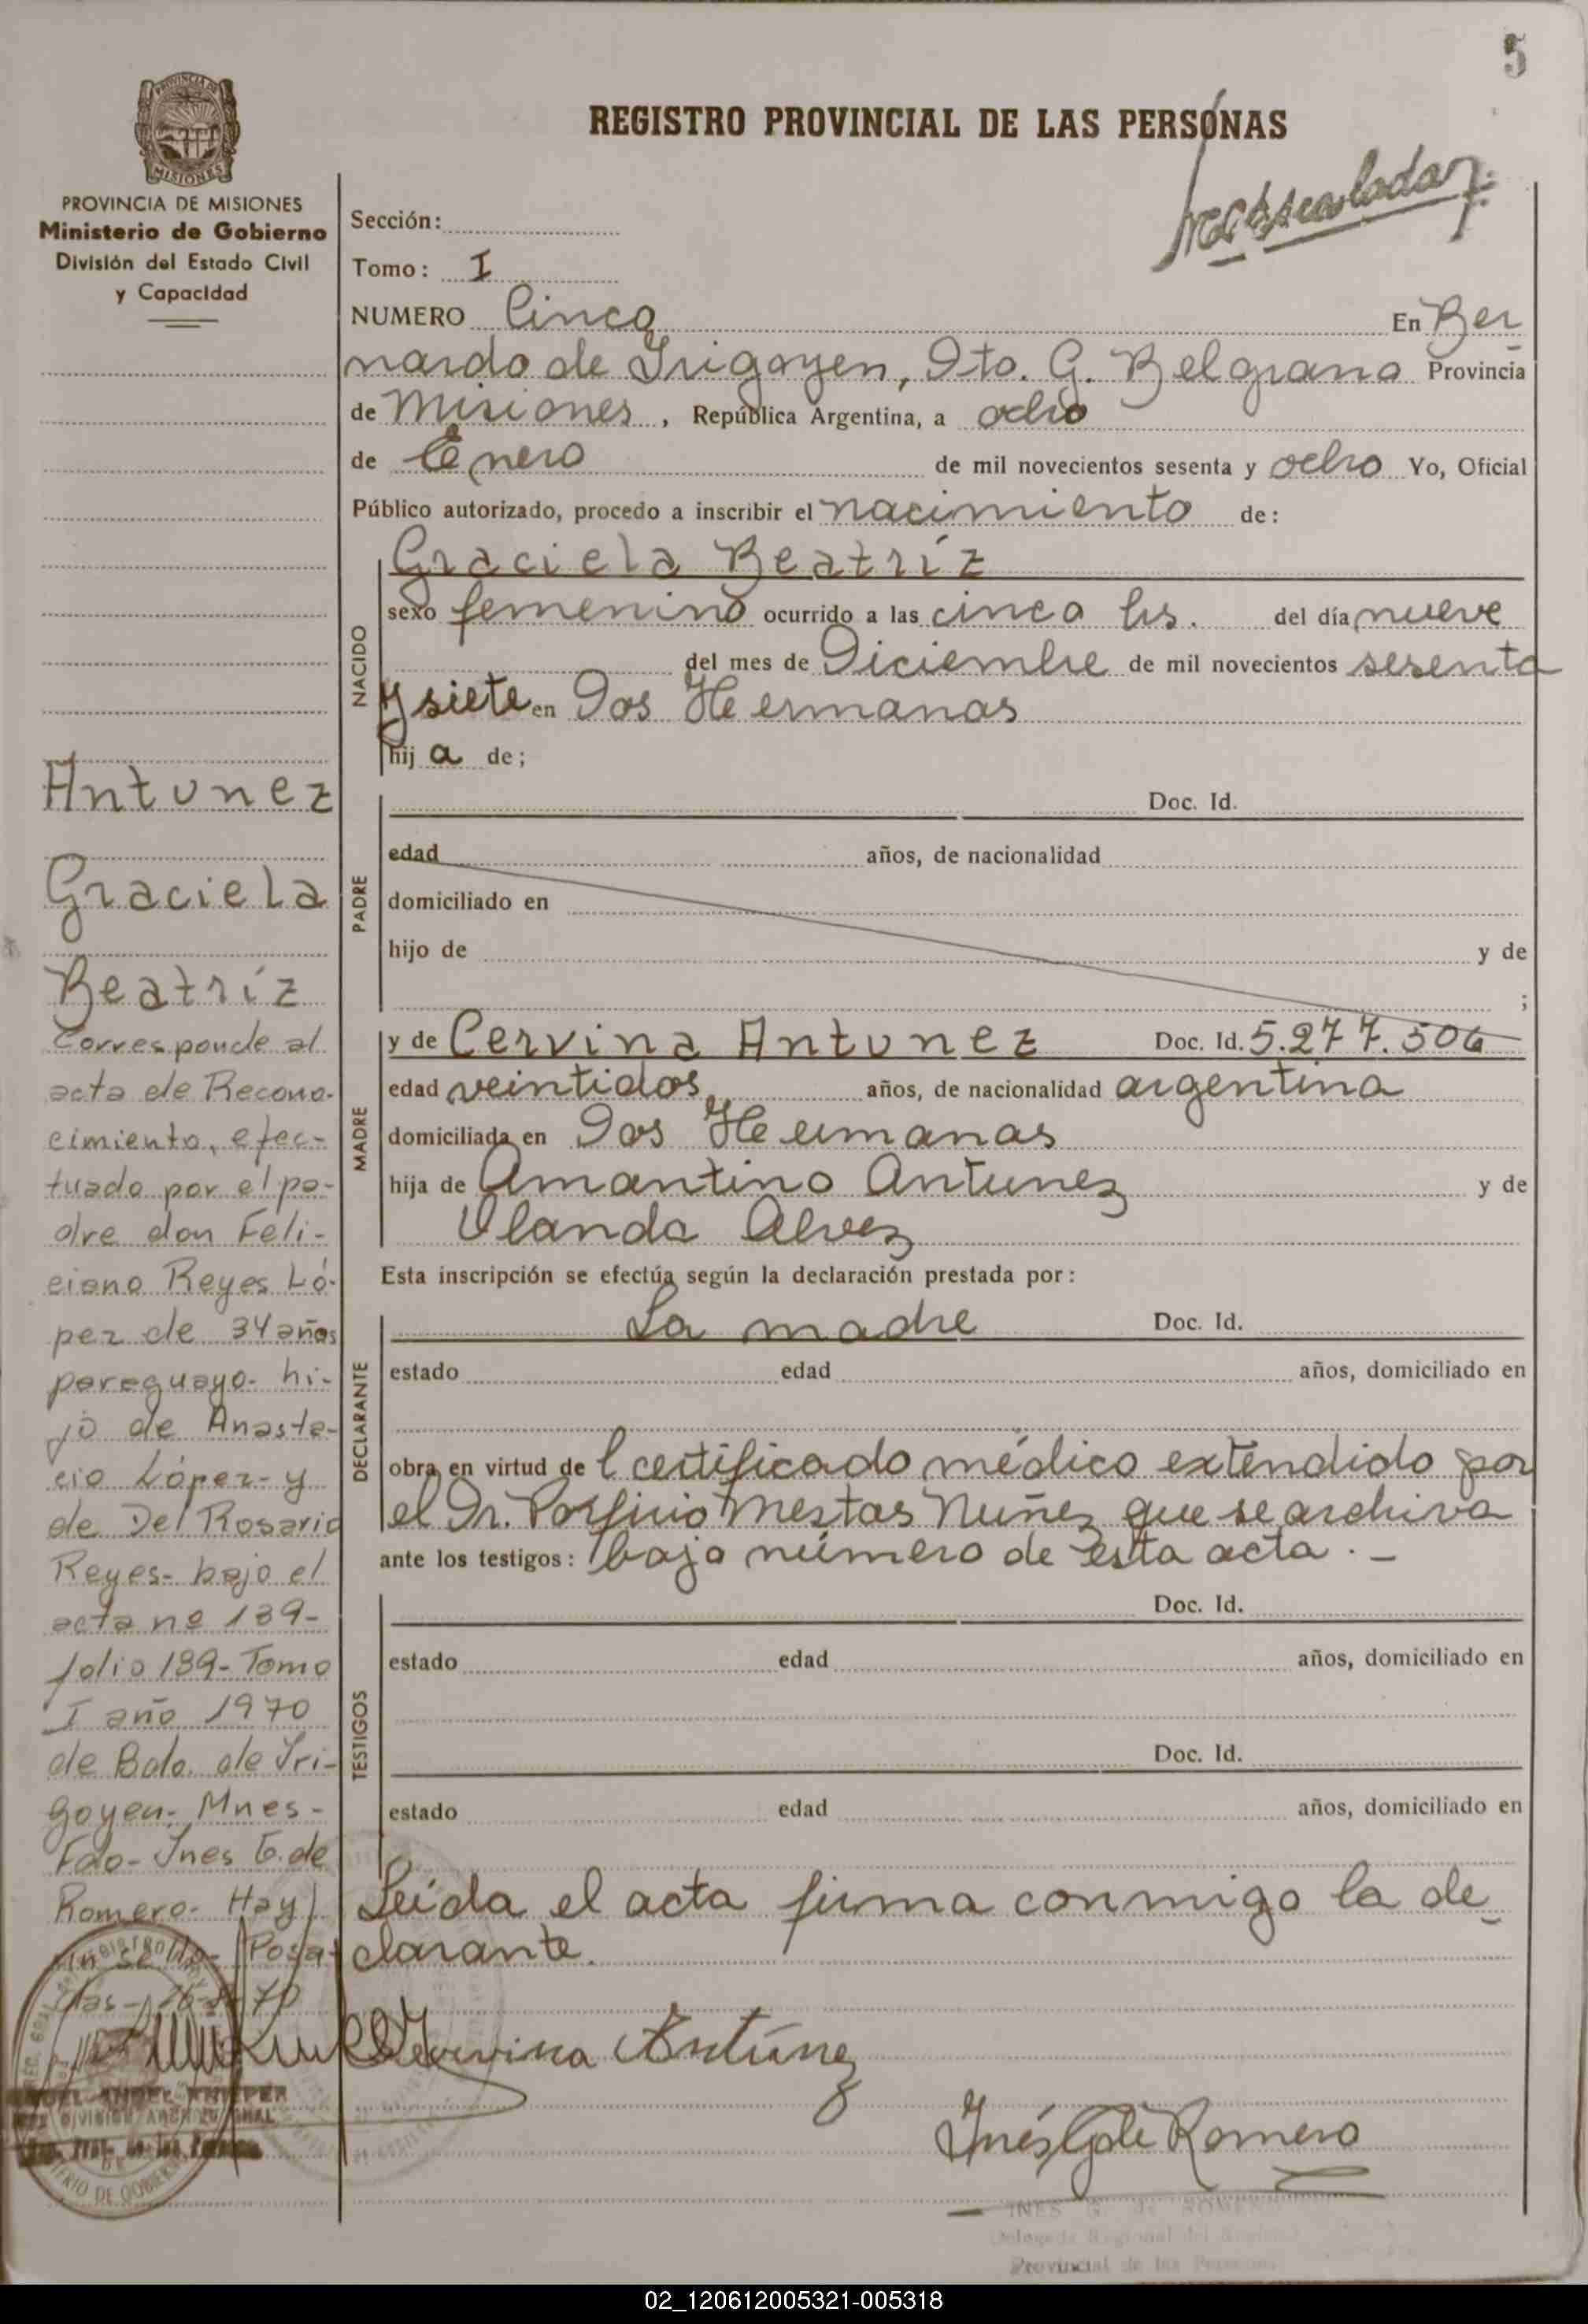 5
PROVINCIA DE
MISIONES
REGISTRO PROVINCIAL DE LAS PERSONAS
PROVINCIA DE MISIONES
Ministerio de Gobierno
División del Estado Civil
y Capacidad
Sección:
Tomo: I
NUMERO Cinco En Ber
nardo de Irigoyen, Dto. G. Belgrano Provincia
de Misiones, República Argentina, a ocho
de Enero de mil novecientos sesenta y ocho Yo, Oficial
Público autorizado, procedo a inscribir el nacimiento de:
NACIDO
Graciela Beatríz
sexo femenino ocurrido a las cinco hs. del día nueve
del mes de Diciembre de mil novecientos sesenta
y siete en Dos Hermanas
hij a de;
PADRE
Doc. Id.
edad años, de nacionalidad
domiciliado en
hijo de y de
;
MADRE
y de Cervina Antunez Doc. Id. 5.277.506
edad veintidos años, de nacionalidad argentina
domiciliada en Dos Hermanas
hija de Amantino Antunez y de
Ulanda Alvez
Esta inscripción se efectúa según la declaración prestada por:
DECLARANTE
La madre Doc. Id.
estado edad años, domiciliado en
obra en virtud de l certificado médico extendido por
el Dr. Porfirio Mestas Nuñez que se archiva
ante los testigos: bajo número de esta acta. -
TESTIGOS
Doc. Id.
estado edad años, domiciliado en
Doc. Id.
estado edad años, domiciliado en
Leída el acta firma conmigo la de
clarante.
Cervina Antúnez
Inés G de Romero
INES G. de ROMERO
Delegada Regional del
Provincial de las Personas
Antunez
Graciela
Beatríz
Corresponde al
acta de Recono-
cimiento, efec-
tuado por el pa-
dre don Feli-
ciano Reyes Ló-
pez de 34 años
paraguayo- hi-
jo de Anasta-
cio López- y
de Del Rosario
Reyes- bajo el
acta nº 189-
folio 189- Tomo
I año 1970
de Bdo. de Iri-
goyen- Mnes-
Fdo- Ines G. de
Romero- Hay
un sello- Posa-
das-
02_120612005321-005318